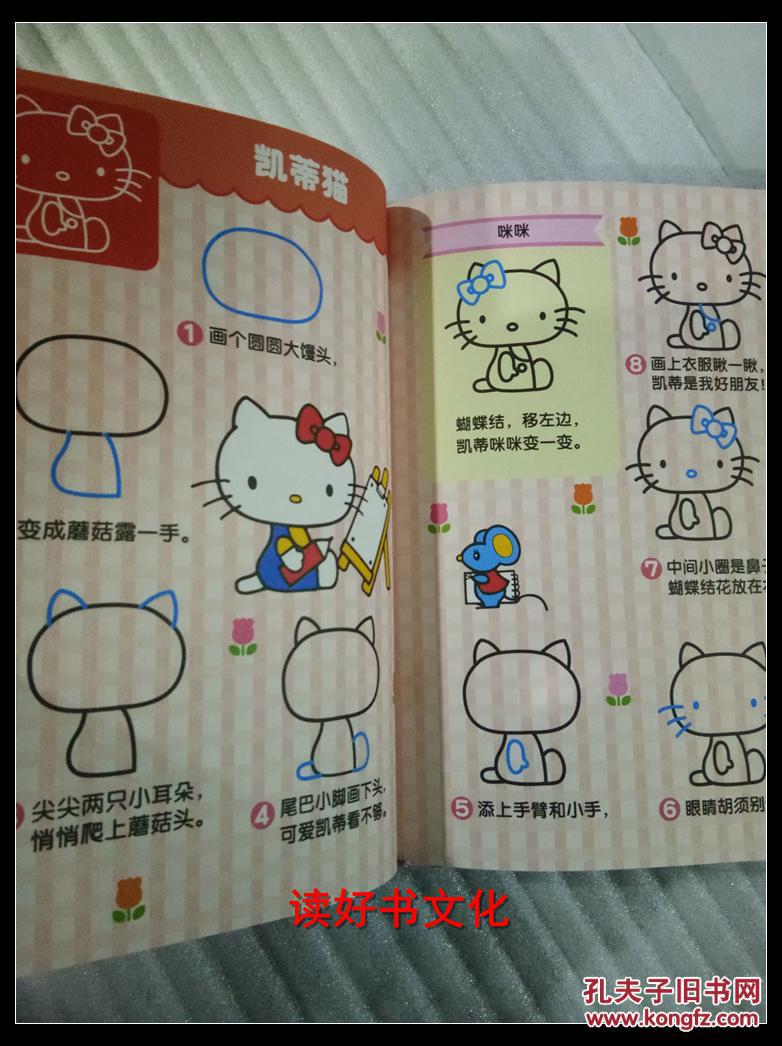 凯蒂猫
1 画个圆圆大馒头，
变成蘑菇露一手。
尖尖两只小耳朵，
悄悄爬上蘑菇头。
4 尾巴小脚画下头，
可爱凯蒂看不够。
咪咪
蝴蝶结，移左边，
凯蒂咪咪变一变。
5 添上手臂和小手，
6 眼睛胡须别
7 中间小圈是鼻
蝴蝶结花放在
8 画上衣服瞅一瞅，
凯蒂是我好朋友！
读好书文化
孔夫子旧书网
www.kongfz.com